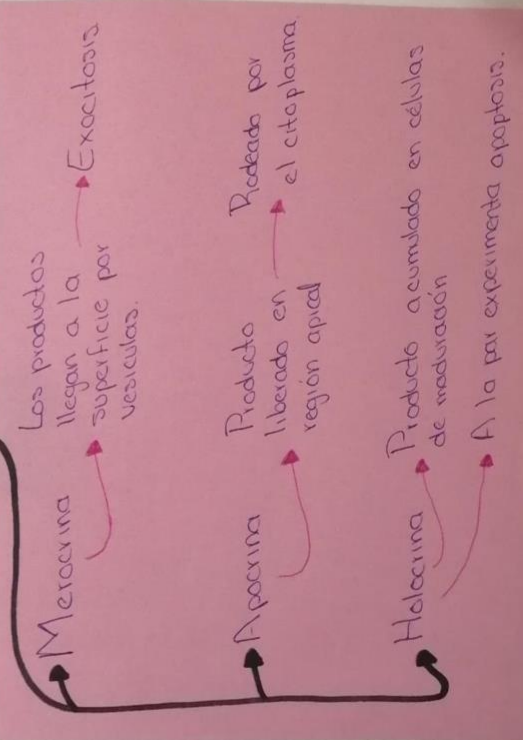 Merocrina
Los productos
llegan a la
superficie por
vesículas.
Exocitosis
Apocrina
Producto
liberado en
región apical
Rodeado por
el citoplasma.
Holocrina
Producto acumulado en células
de maduración
A la par experimenta apoptosis.